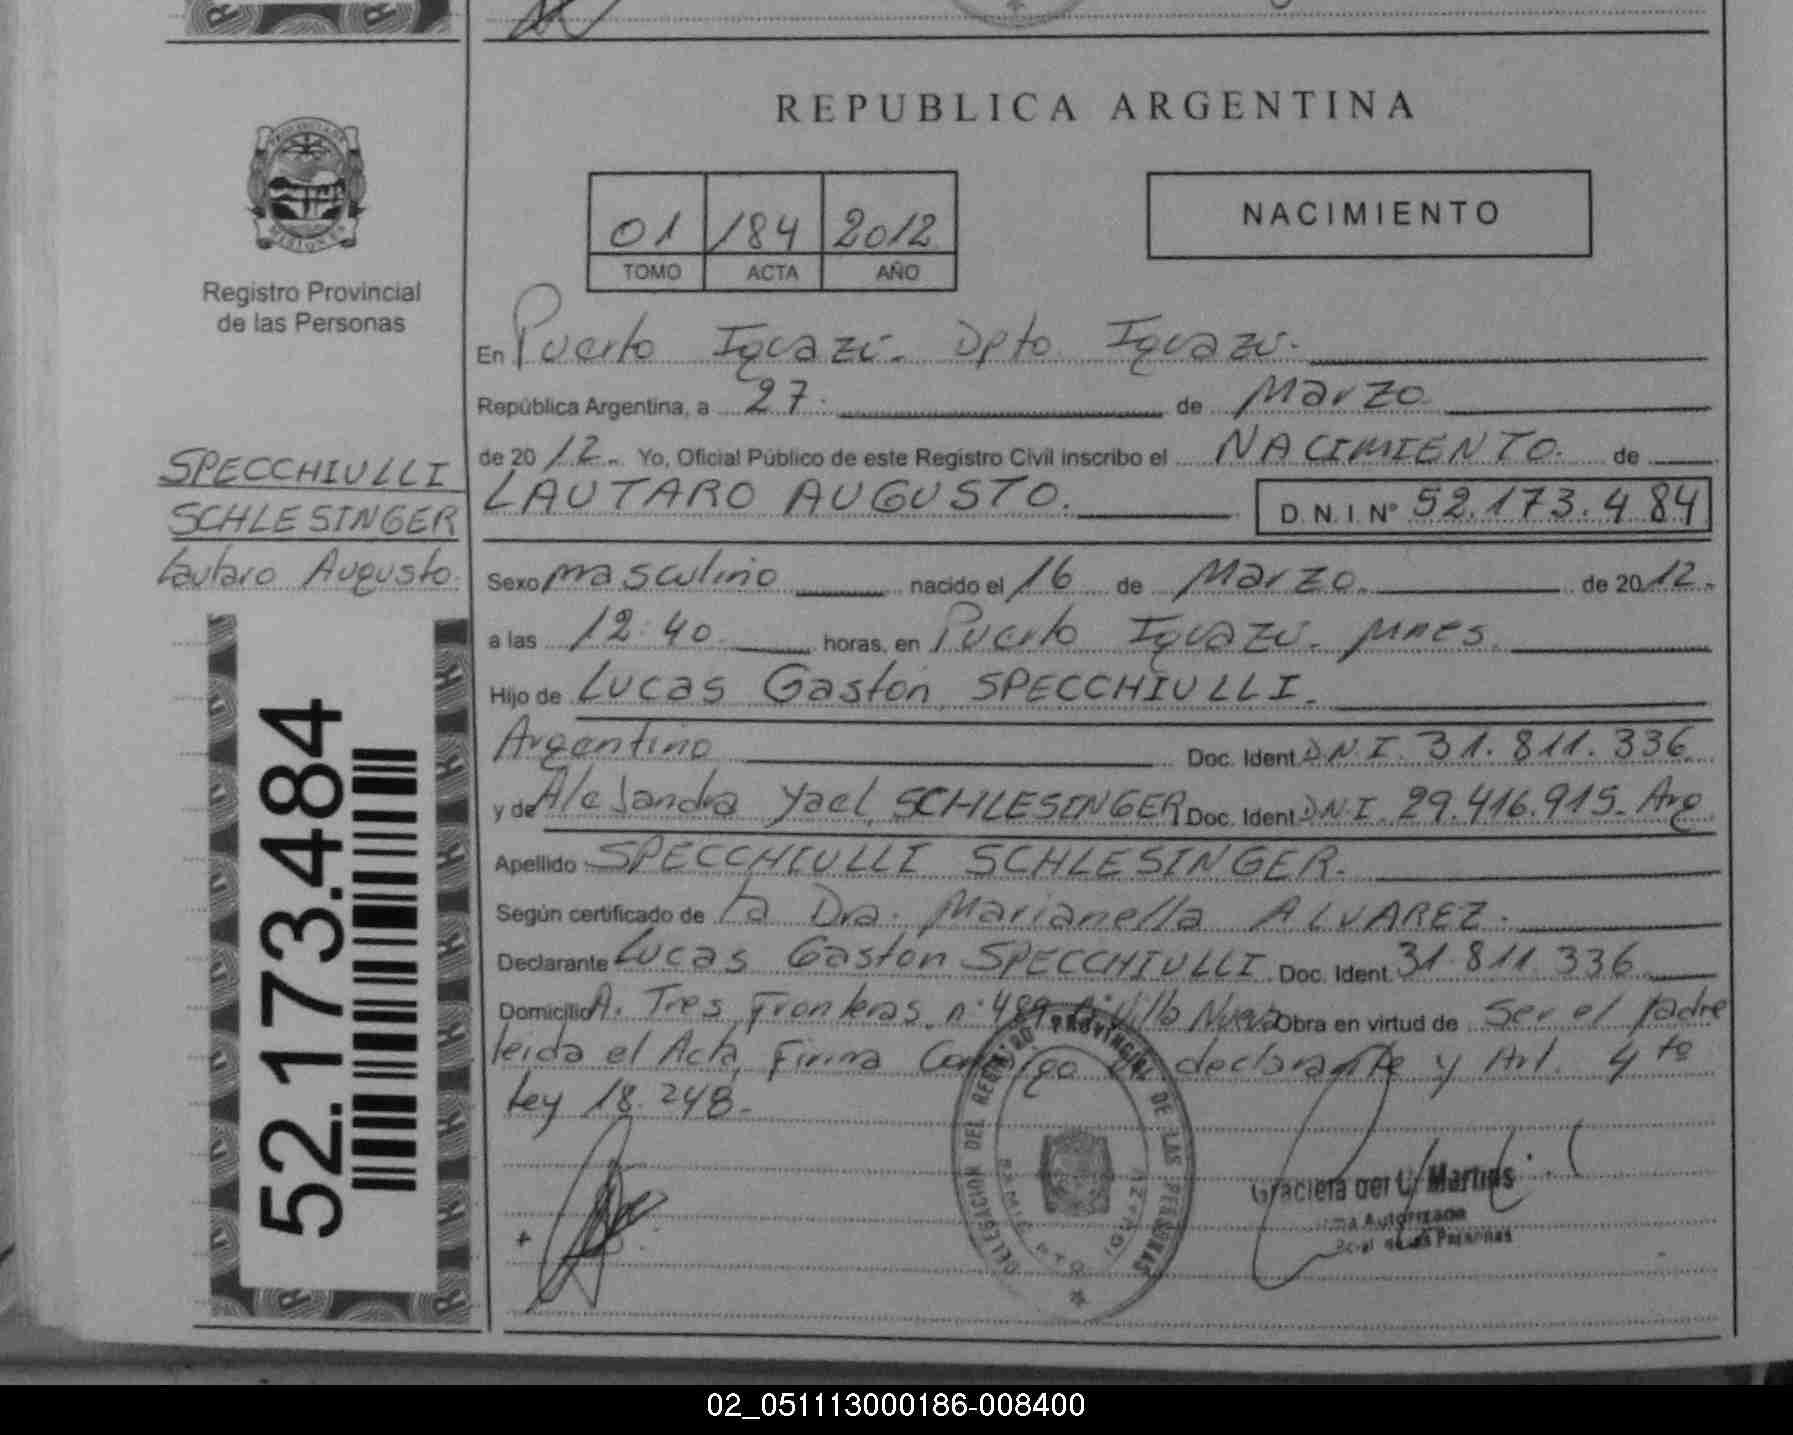 REPUBLICA ARGENTINA
PROVINCIA DE
MISIONES
Registro Provincial
de las Personas
01 184 2012
TOMO ACTA AÑO
NACIMIENTO
En Puerto Iguazú. Dpto Iguazú.
República Argentina, a 27. de Marzo
de 2012. Yo, Oficial Público de este Registro Civil inscribo el NACIMIENTO. de
LAUTARO AUGUSTO. D.N.I. Nº 52.173.484
SPECCHIULLI
SCHLESINGER
Lautaro Augusto.
Sexo masculino nacido el 16 de Marzo. de 2012.
a las 12:40 horas, en Puerto Iguazú. Mnes.
Hijo de Lucas Gastón SPECCHIULLI.
Argentino Doc. Ident. D.N.I. 31.811.336
y de Alejandra Yael SCHLESINGER Doc. Ident. D.N.I. 29.416.915. Arg
Apellido SPECCHIULLI SCHLESINGER.
Según certificado de La Dra. Marianella ALVAREZ.
Declarante Lucas Gastón SPECCHIULLI Doc. Ident. 31.811.336
Domicilio A. Tres Fronteras nº 489 Bº Villa Nueva Obra en virtud de Ser el padre
leida el Acta, Firma Conmigo el declarante y Art. 4to
Ley 18.248.
52.173.484
DELEGACION DEL REGISTRO PROVINCIAL DE LAS PERSONAS
IGUAZU
Graciela del C. Martins
Autorizada
de las Personas
02_051113000186-008400